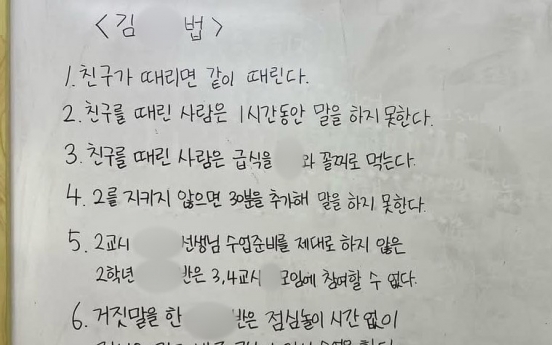 <김 법>
1. 친구가 때리면 같이 때린다.
2. 친구를 때린 사람은 1시간동안 말을 하지 못한다.
3. 친구를 때린 사람은 급식을 와 꼴찌로 먹는다.
4. 2를 지키지 않으면 30분을 추가해 말을 하지 못한다.
5. 2교시 선생님 수업준비를 제대로 하지 않은
2학년 반은 3,4교시 모임에 참여할 수 없다.
6. 거짓말을 한 반은 점심놀이 시간 없이